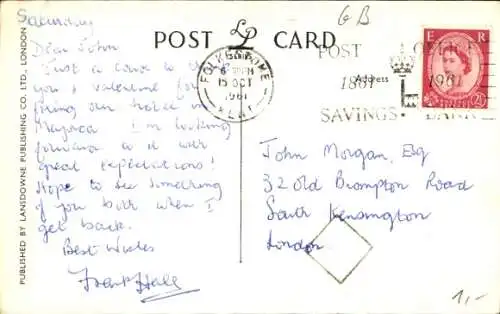 Saturday
Dear John,
Just a card to thank
you & Valentine for
fixing our hotel in
Majorca. I'm looking
forward to it with
great expectations!
Hope to see something
of you both when I
get back.
Best Wishes
Frank Hall
PUBLISHED BY LANSDOWNE PUBLISHING CO. LTD., LONDON
LP
POST CARD
GB
FOLKESTONE
15 OCT
1961
KENT
POST OFFICE
1861 1961
SAVINGS BANK
E R
2½
Address
John Morgan, Esq
32 Old Brompton Road
South Kensington
London
1,-